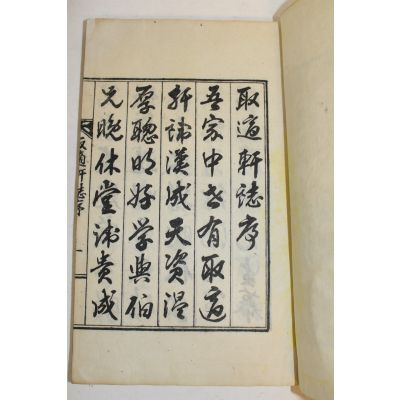 取適軒誌序
吾家中世有取適
軒諱漢成天資溫
厚聰明好學與伯
兄晚休堂諱貴成
取適軒誌序
一